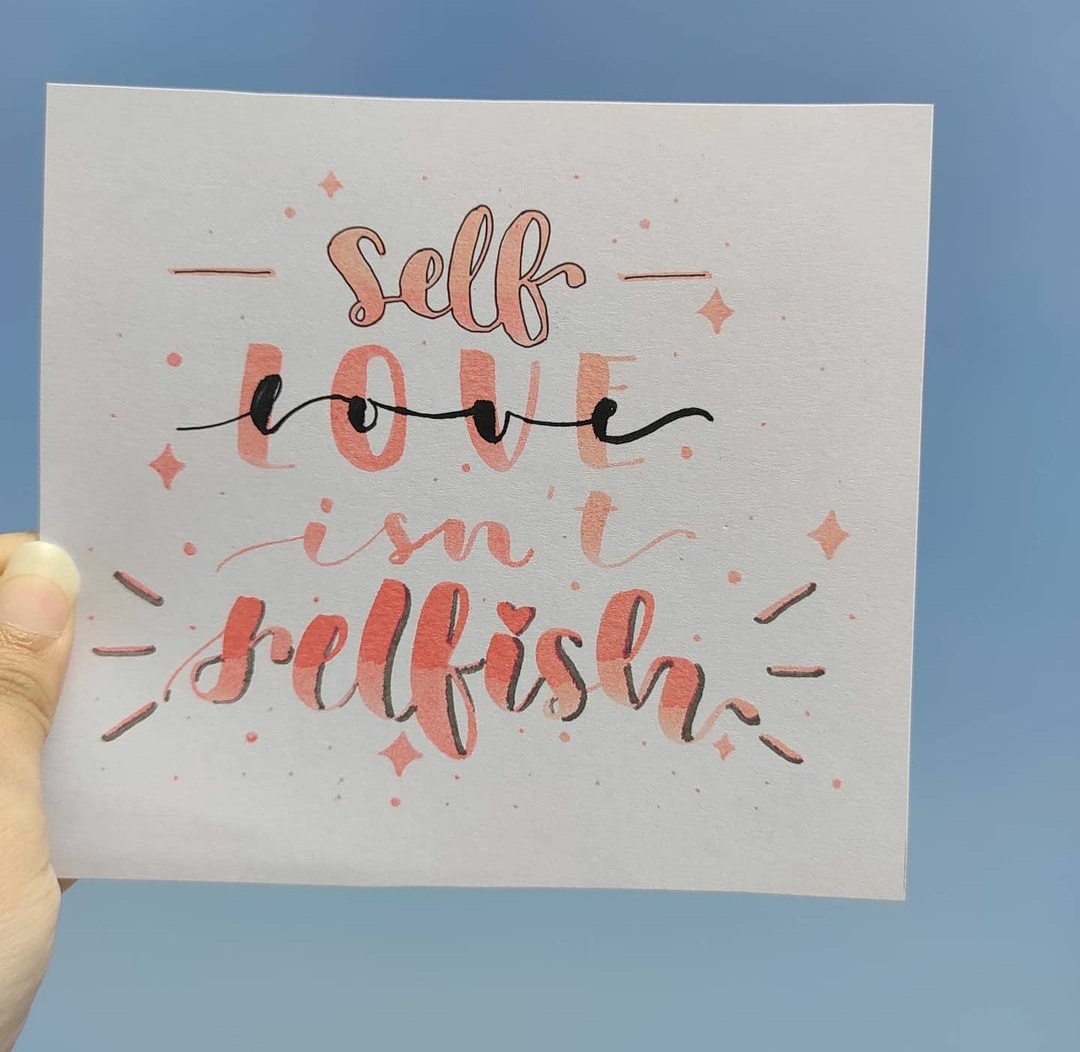 self
LOVE
love
isn't
selfish